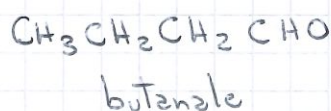 CH₃CH₂CH₂CHO
butanale